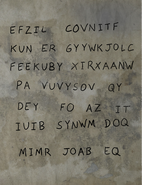 EFZIL COVNITF
KUN ER GYYWKJOLC
FEEKUBY XIRXAANW
PA VUVYSOV QY
DEY FO AZ IT
IUIB SYNWM DOQ
MIMR JOAB EQ